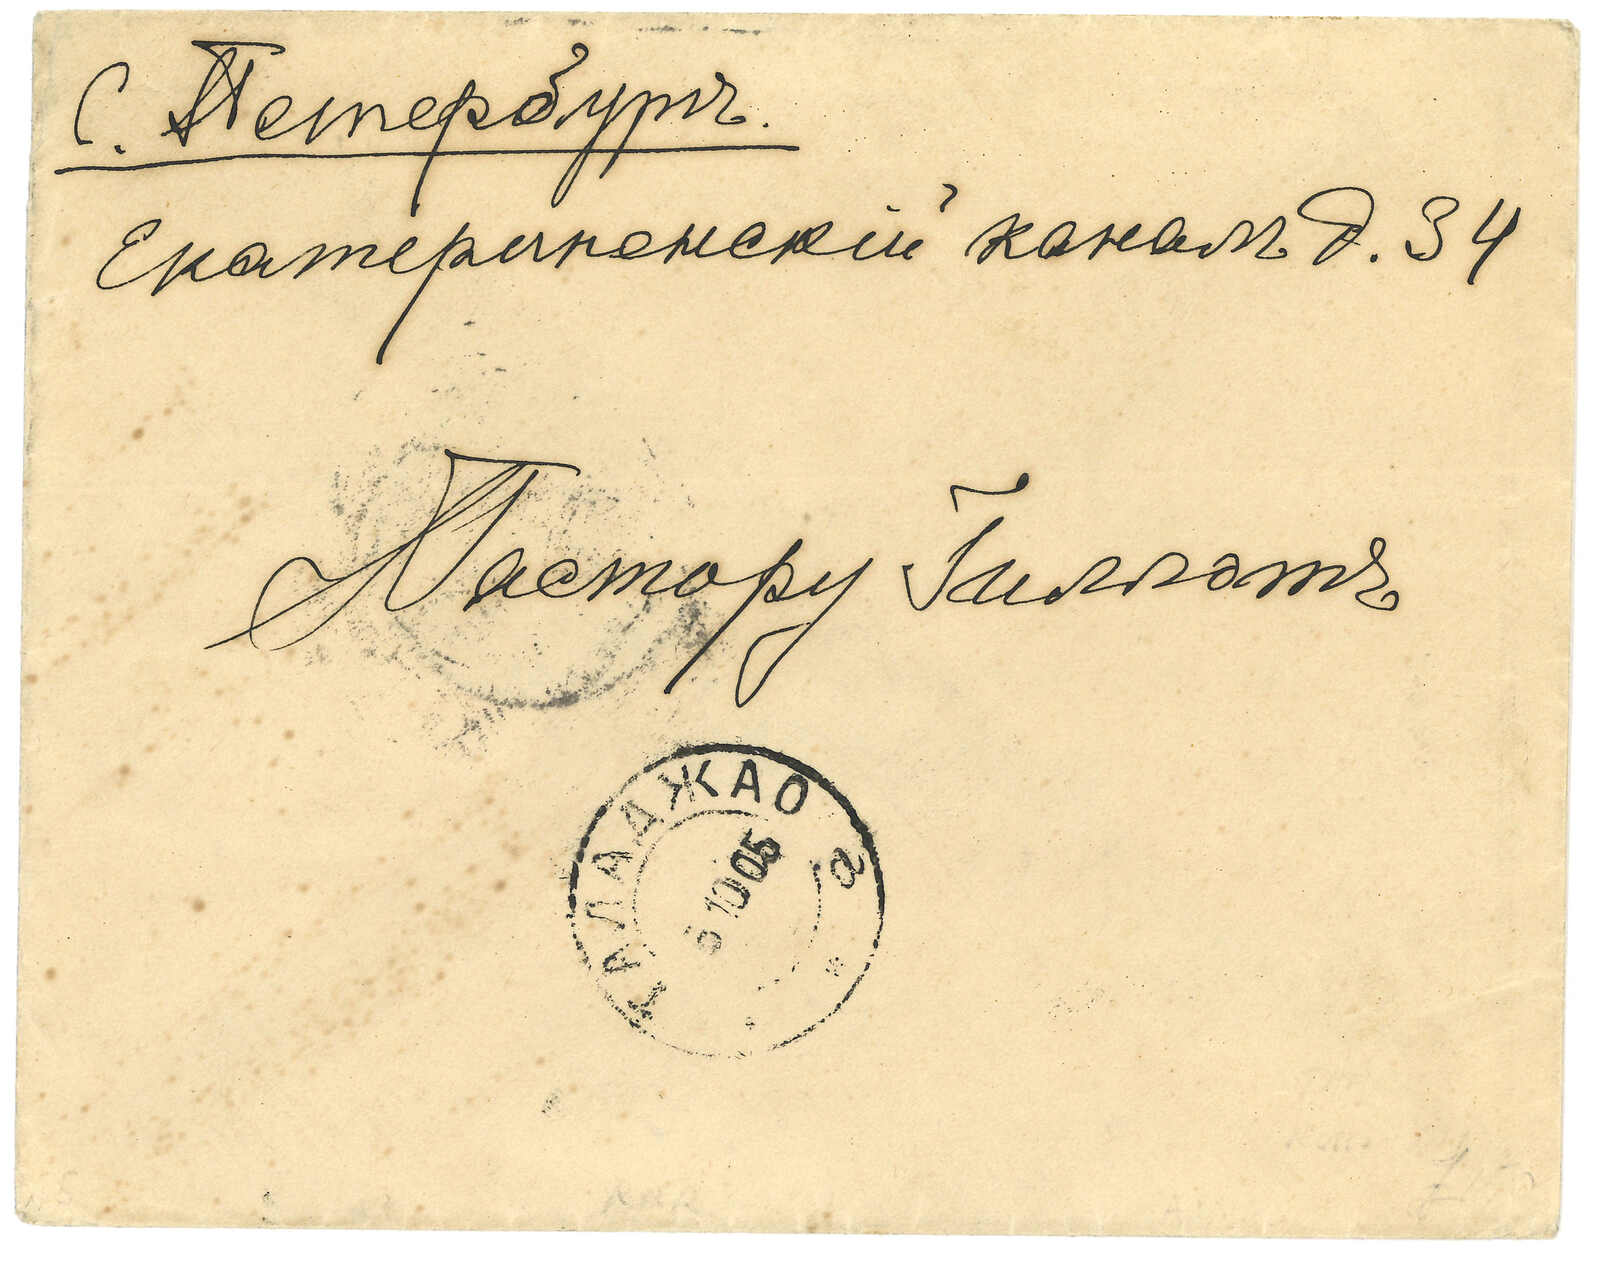 С. Петербургъ.
Екатериненскій каналъ д. 34
Пастору Гиллотъ
ГАЛААЖАО а
6 10 05